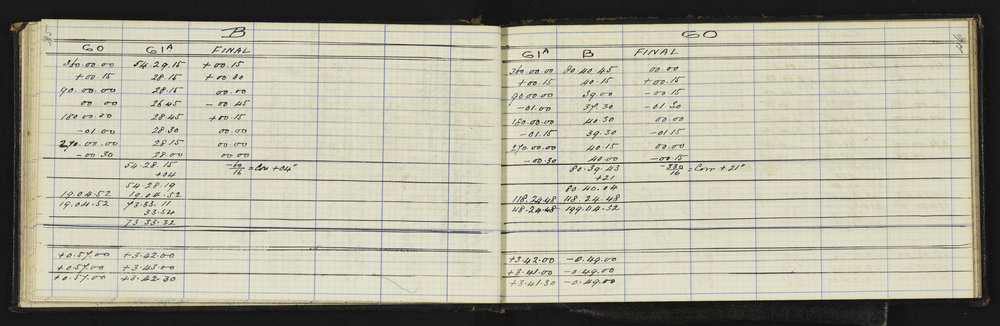 B
60 61A FINAL
360.00.00 54.29.15 +00.15
+00.15 28.15 +00.30
90.00.00 28.15 00.00
00.00 26.45 -00.45
180.00.00 28.45 +00.15
-01.00 28.30 00.00
270.00.00 28.15 00.00
-00.30 28.00 00.00
54.28.15 -60/16 = Corr +04"
+04
54.28.19
19.04.52 19.04.52
19.04.52 73.33.11
73.33.32
+0.57.00 +3.42.00
+0.57.00 +3.43.00
+0.57.00 +3.42.30
60
61A B FINAL
360.00.00 80.40.45 00.00
+00.15 40.15 +00.15
90.00.00 39.00 -00.15
-01.00 37.30 -01.30
180.00.00 40.30 00.00
-01.15 39.30 -01.15
270.00.00 40.15 00.00
-00.30 40.00 -00.15
80.39.43 -330/16 = Corr +21"
+21
80.40.04
118.24.48 118.24.48
118.24.48 199.04.52
+3.42.00 -0.49.00
+3.41.00 -0.49.00
+3.41.30 -0.49.00